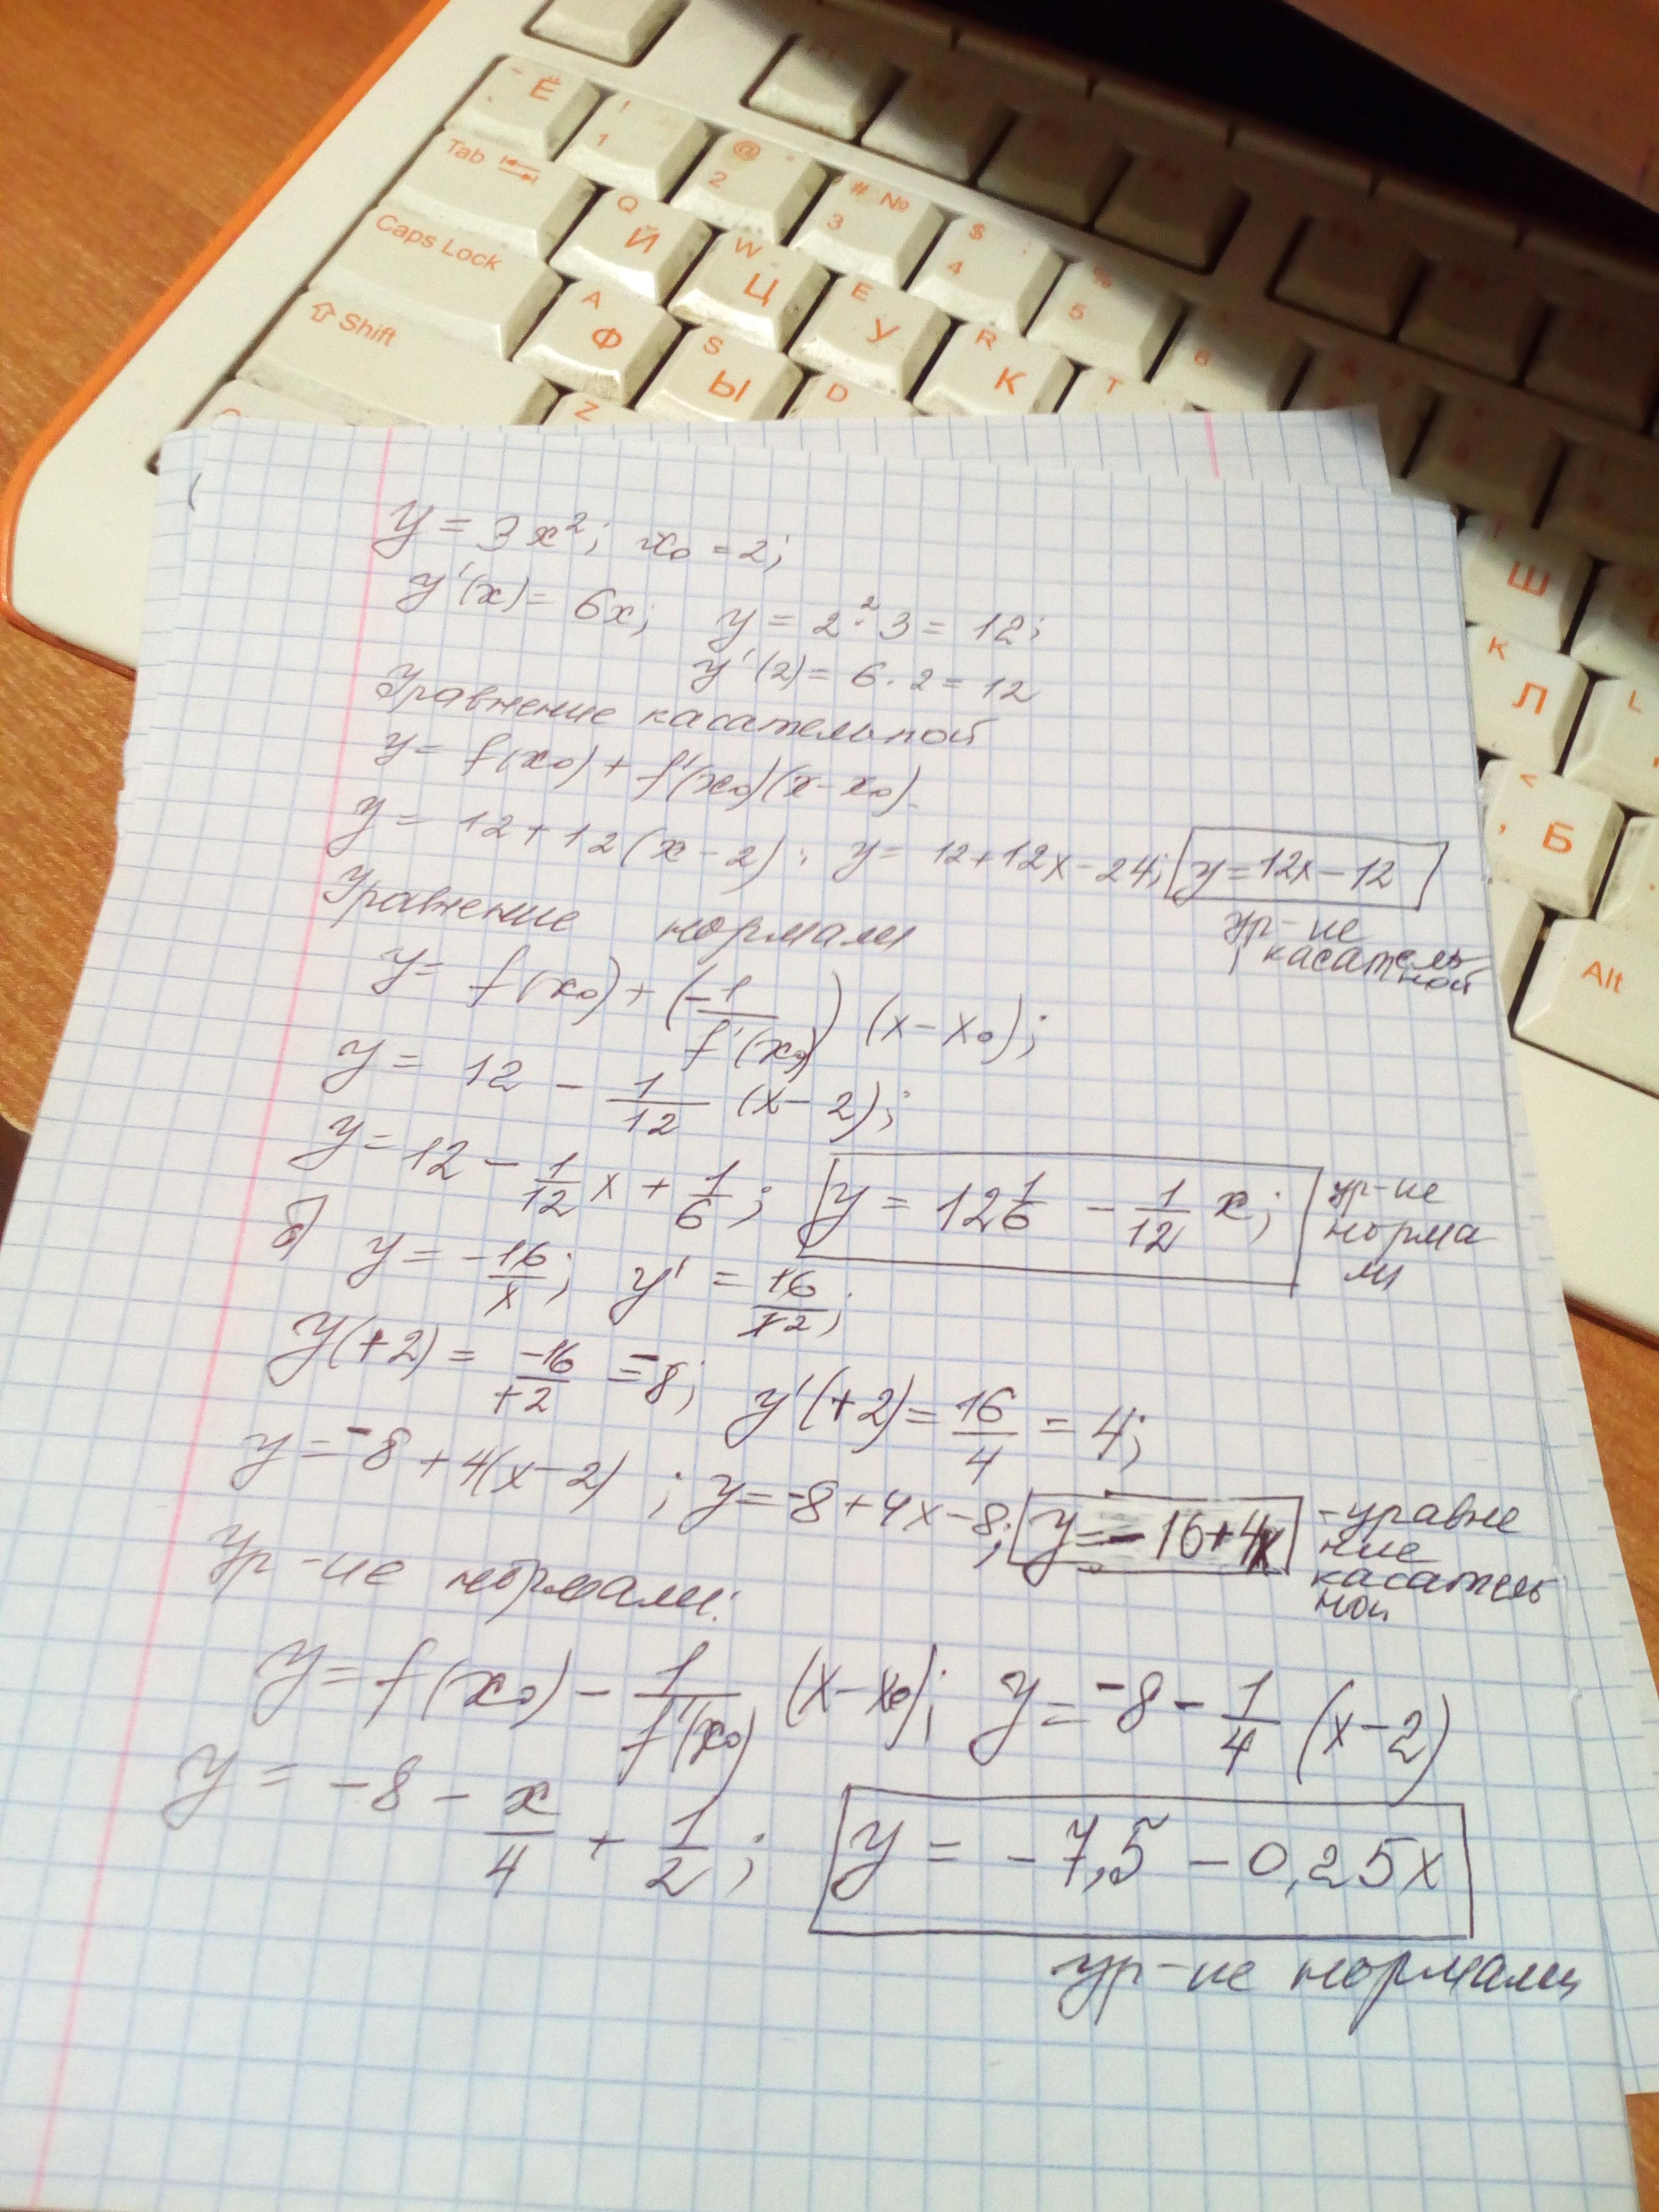 ~ Ё
! 1
@ " 2
# № 3
$ ; 4
% 5
6
Tab
Q Й
W Ц
E У
R К
T
Caps Lock
A Ф
S Ы
D
Shift
Z
Ш
K Л
L
< , Б
Alt
y = 3x²; x₀ = 2;
y'(x) = 6x; y = 2²·3 = 12;
y'(2) = 6·2 = 12
Уравнение касательной
y = f(x₀) + f'(x₀)(x - x₀).
y = 12 + 12(x - 2); y = 12 + 12x - 24; y = 12x - 12
ур-ие
касатель
ной
Уравнение нормали
y = f(x₀) + (-1/f'(x₀)) (x - x₀);
y = 12 - 1/12 (x - 2);
y = 12 - 1/12 x + 1/6; y = 12 1/6 - 1/12 x;
ур-ие
норма
ли
б) y = -16/x; y' = 16/x²;
y(+2) = -16/+2 = -8; y'(+2) = 16/4 = 4;
y = -8 + 4(x - 2); y = -8 + 4x - 8; y = -16 + 4x
- уравне
ние
касатель
ной
Ур-ие нормали:
y = f(x₀) - 1/f'(x₀) (x - x₀); y = -8 - 1/4 (x - 2)
y = -8 - x/4 + 1/2; y = -7,5 - 0,25x
ур-ие нормали